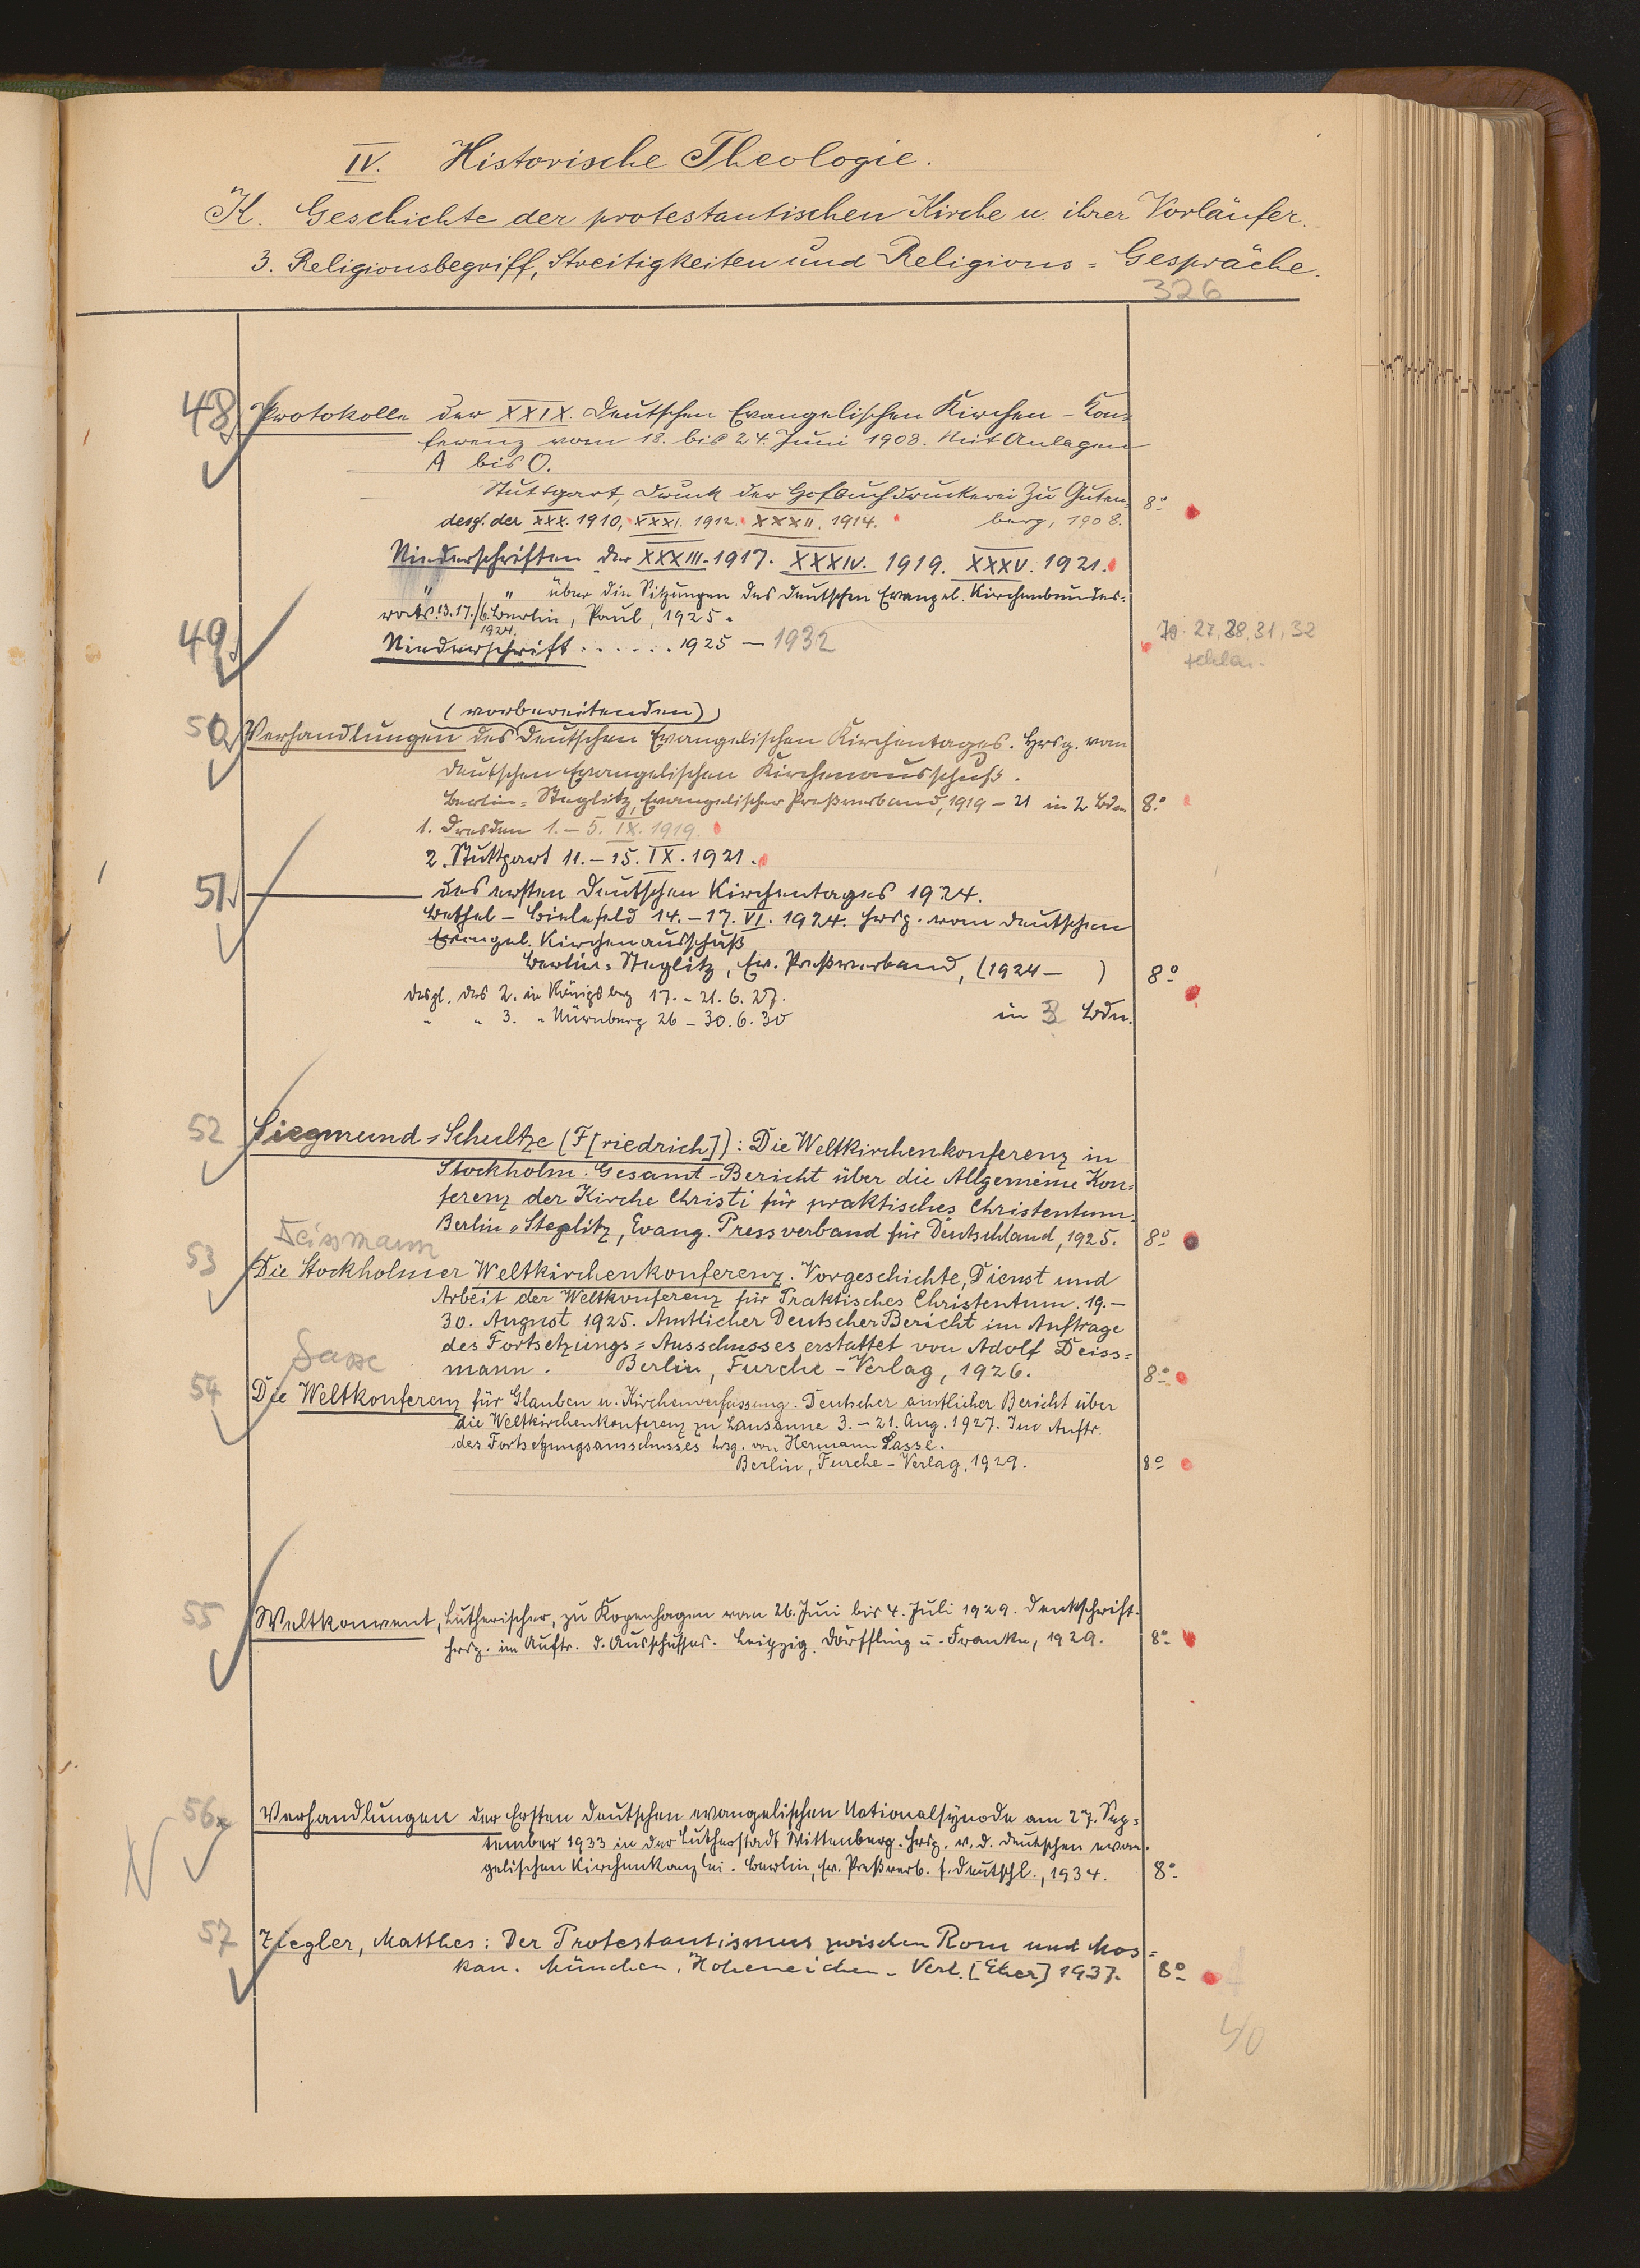 IV. Historische Theologie.
K. Geschichte der protestantischen Kirche u. ihrer Vorläufer.
3. Religionsbegriff, Streitigkeiten und Religions = Gespräche.
326
48 Protokolle der XXIX. Deutschen Evangelischen Kirchen-Kon=
ferenz vom 18. bis 24. Juni 1908. Mit Anlagen
A bis O.
Stuttgart, Druck der Hofbuchdruckerei Zu Guten= 8°
desgl. der XXX. 1910, XXXI. 1912. XXXII. 1914. berg, 1908.
Niederschriften der XXXIII. 1917. XXXIV. 1919. XXXV. 1921.
" " über die Sitzungen des Deutschen Evangel. Kirchenbundes=
rats 13. 17./6. Berlin, Paul, 1925.
1924.
49 Niederschrift . . . . . . 1925 – 1932
27, 28, 31, 32
fehlen.
(vorbereitenden)
50 Verhandlungen des Deutschen Evangelischen Kirchentages. Hrsg. vom
Deutschen Evangelischen Kirchenausschuß.
Berlin=Steglitz, Evangelischer Preßverband, 1919 – 21 in 2 Bdn 8°
1. Dresden 1. – 5. IX. 1919.
2. Stuttgart 11. – 15. IX. 1921.
51 ——— des ersten Deutschen Kirchentages 1924.
Bethel – Bielefeld 14. – 17. VI. 1924. Hrsg. vom Deutschen
Evangel. Kirchenausschuß
Berlin=Steglitz, Ev. Preßverband, (1924 – ) 8°
desgl. des 2. in Königsberg 17. – 21. 6. 27.
" " 3. " Nürnberg 26 – 30. 6. 30 in 3 Bdn.
52 Siegmund=Schultze (F[riedrich]): Die Weltkirchenkonferenz in
Stockholm. Gesamt-Bericht über die Allgemeine Kon=
ferenz der Kirche Christi für praktisches Christentum.
Berlin=Steglitz, Evang. Pressverband für Deutschland, 1925. 8°
Deissmann
53 Die Stockholmer Weltkirchenkonferenz. Vorgeschichte, Dienst und
Arbeit der Weltkonferenz für Praktisches Christentum. 19. –
30. August 1925. Amtlicher Deutscher Bericht im Auftrage
des Fortsetzungs=Ausschusses erstattet von Adolf Deiss=
mann. Berlin, Furche-Verlag, 1926. 8°
Sasse
54 Die Weltkonferenz für Glauben u. Kirchenverfassung. Deutscher amtlicher Bericht über
die Weltkirchenkonferenz zu Lausanne 3. – 21. Aug. 1927. Im Auftr.
des Fortsetzungsausschusses hrsg. von Hermann Sasse.
Berlin, Furche-Verlag, 1929. 8°
55 Weltkonvent, Lutherischer, zu Kopenhagen vom 26. Juni bis 4. Juli 1929. Denkschrift.
Hrsg. im Auftr. d. Ausschusses. Leipzig, Dörffling u. Franke, 1929. 8°
56 Verhandlungen der Ersten Deutschen evangelischen Nationalsynode am 27. Sep=
tember 1933 in der Lutherstadt Wittenberg. Hrsg. v. d. Deutschen evan=
gelischen Kirchenkanzlei. Berlin, Ev. Preßverb. f. Deutschl., 1934. 8°
57 Ziegler, Matthes: Der Protestantismus zwischen Rom und Mos=
kau. München, Hoheneichen-Verl. [Eher] 1937. 8°
40